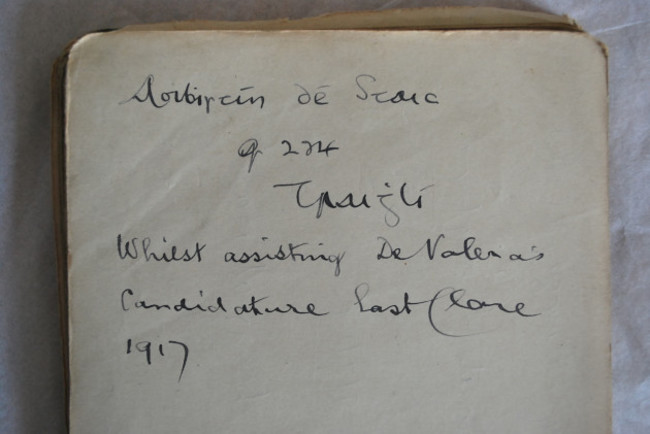 Aoibistín de Stac
q 224
Traiġlí
Whilst assisting De Valera's
Candidature East Clare
1917